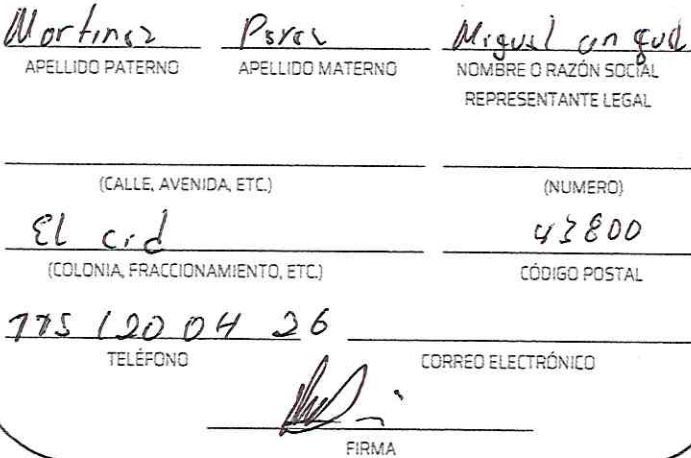 Martinez Perez Miguel angel
APELLIDO PATERNO APELLIDO MATERNO NOMBRE O RAZÓN SOCIAL
REPRESENTANTE LEGAL
(CALLE, AVENIDA, ETC.) (NUMERO)
El cid 43800
(COLONIA, FRACCIONAMIENTO, ETC.) CÓDIGO POSTAL
775 120 04 26
TELÉFONO CORREO ELECTRÓNICO
FIRMA